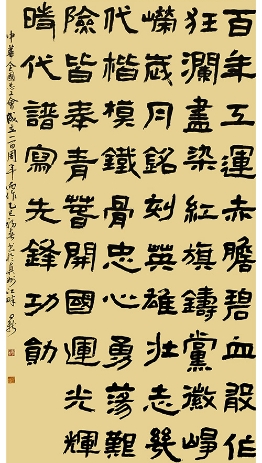 百年工運赤膽碧血敢作
狂瀾盡染紅旗鑄黨徽崢
嶸歲月銘刻英雄壯志幾
代楷模鐵骨忠心勇蕩艱
險皆奉青春開國運光輝
時代譜寫先鋒功勛
中華全國总工會成立一百周年而作乙巳書於真州江畔